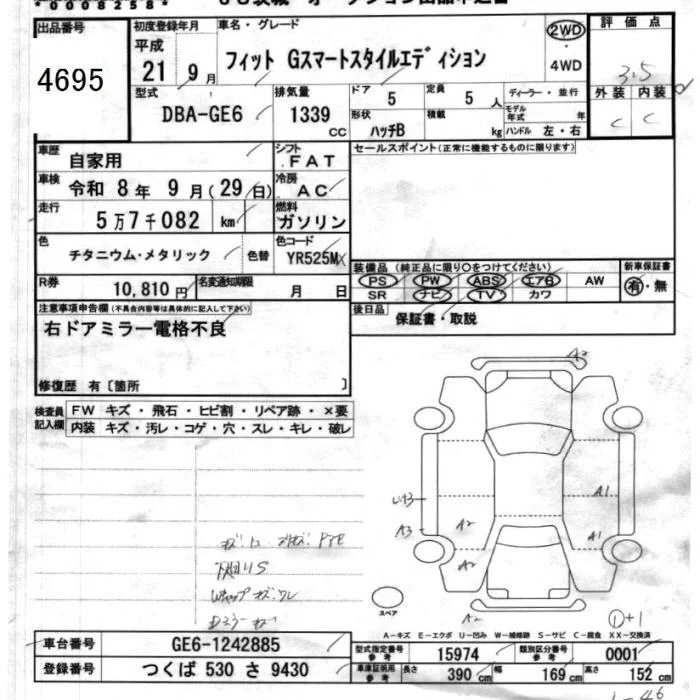 *0008258*
出品番号
4695
初度登録年月
平成
21 9 月
車名・グレード
フィット Gスマートスタイルエディション
2WD
・
4WD
評価点
3.5
外装 内装
C C
型式
DBA-GE6
排気量
1339
CC
ドア
5
定員
5 人
形状
ハッチB
積載
kg
ディーラー・並行
モデル年式 年
ハンドル 左・右
車歴
自家用
シフト
FAT
セールスポイント(正常に機能するものに限ります)
車検
令和 8 年 9 月(29日)
冷房
AC
走行
5万7千082 km
燃料
ガソリン
色
チタニウム・メタリック
色替
色カラーコード
YR525M
装備品(純正品に限り○をつけてください)
新車保証書
PS PW ABS エアB AW
有・無
SR ナビ TV カワ
R券
10,810 円
名変通知期限
月 日
後日品
保証書・取説
注意事項申告欄(不具合内容等は具体的に記入して下さい)
右ドアミラー電格不良
修復歴 有〔箇所 〕
検査員記入欄
FW キズ・飛石・ヒビ割・リペア跡・×要
内装 キズ・汚レ・コゲ・穴・スレ・キレ・破レ
A2
A1
A3
A2
A1
A2
A2
スペア
A-キズ E-エクボ U-凹み W-補修跡 S-サビ C-腐食 XX-交換済
車台番号
GE6-1242885
型式指定番号 参考
15974
類別区分番号 参考
0001
登録番号
つくば 530 さ 9430
車庫証明用 参考
長さ 390 cm
幅 169 cm
高さ 152 cm